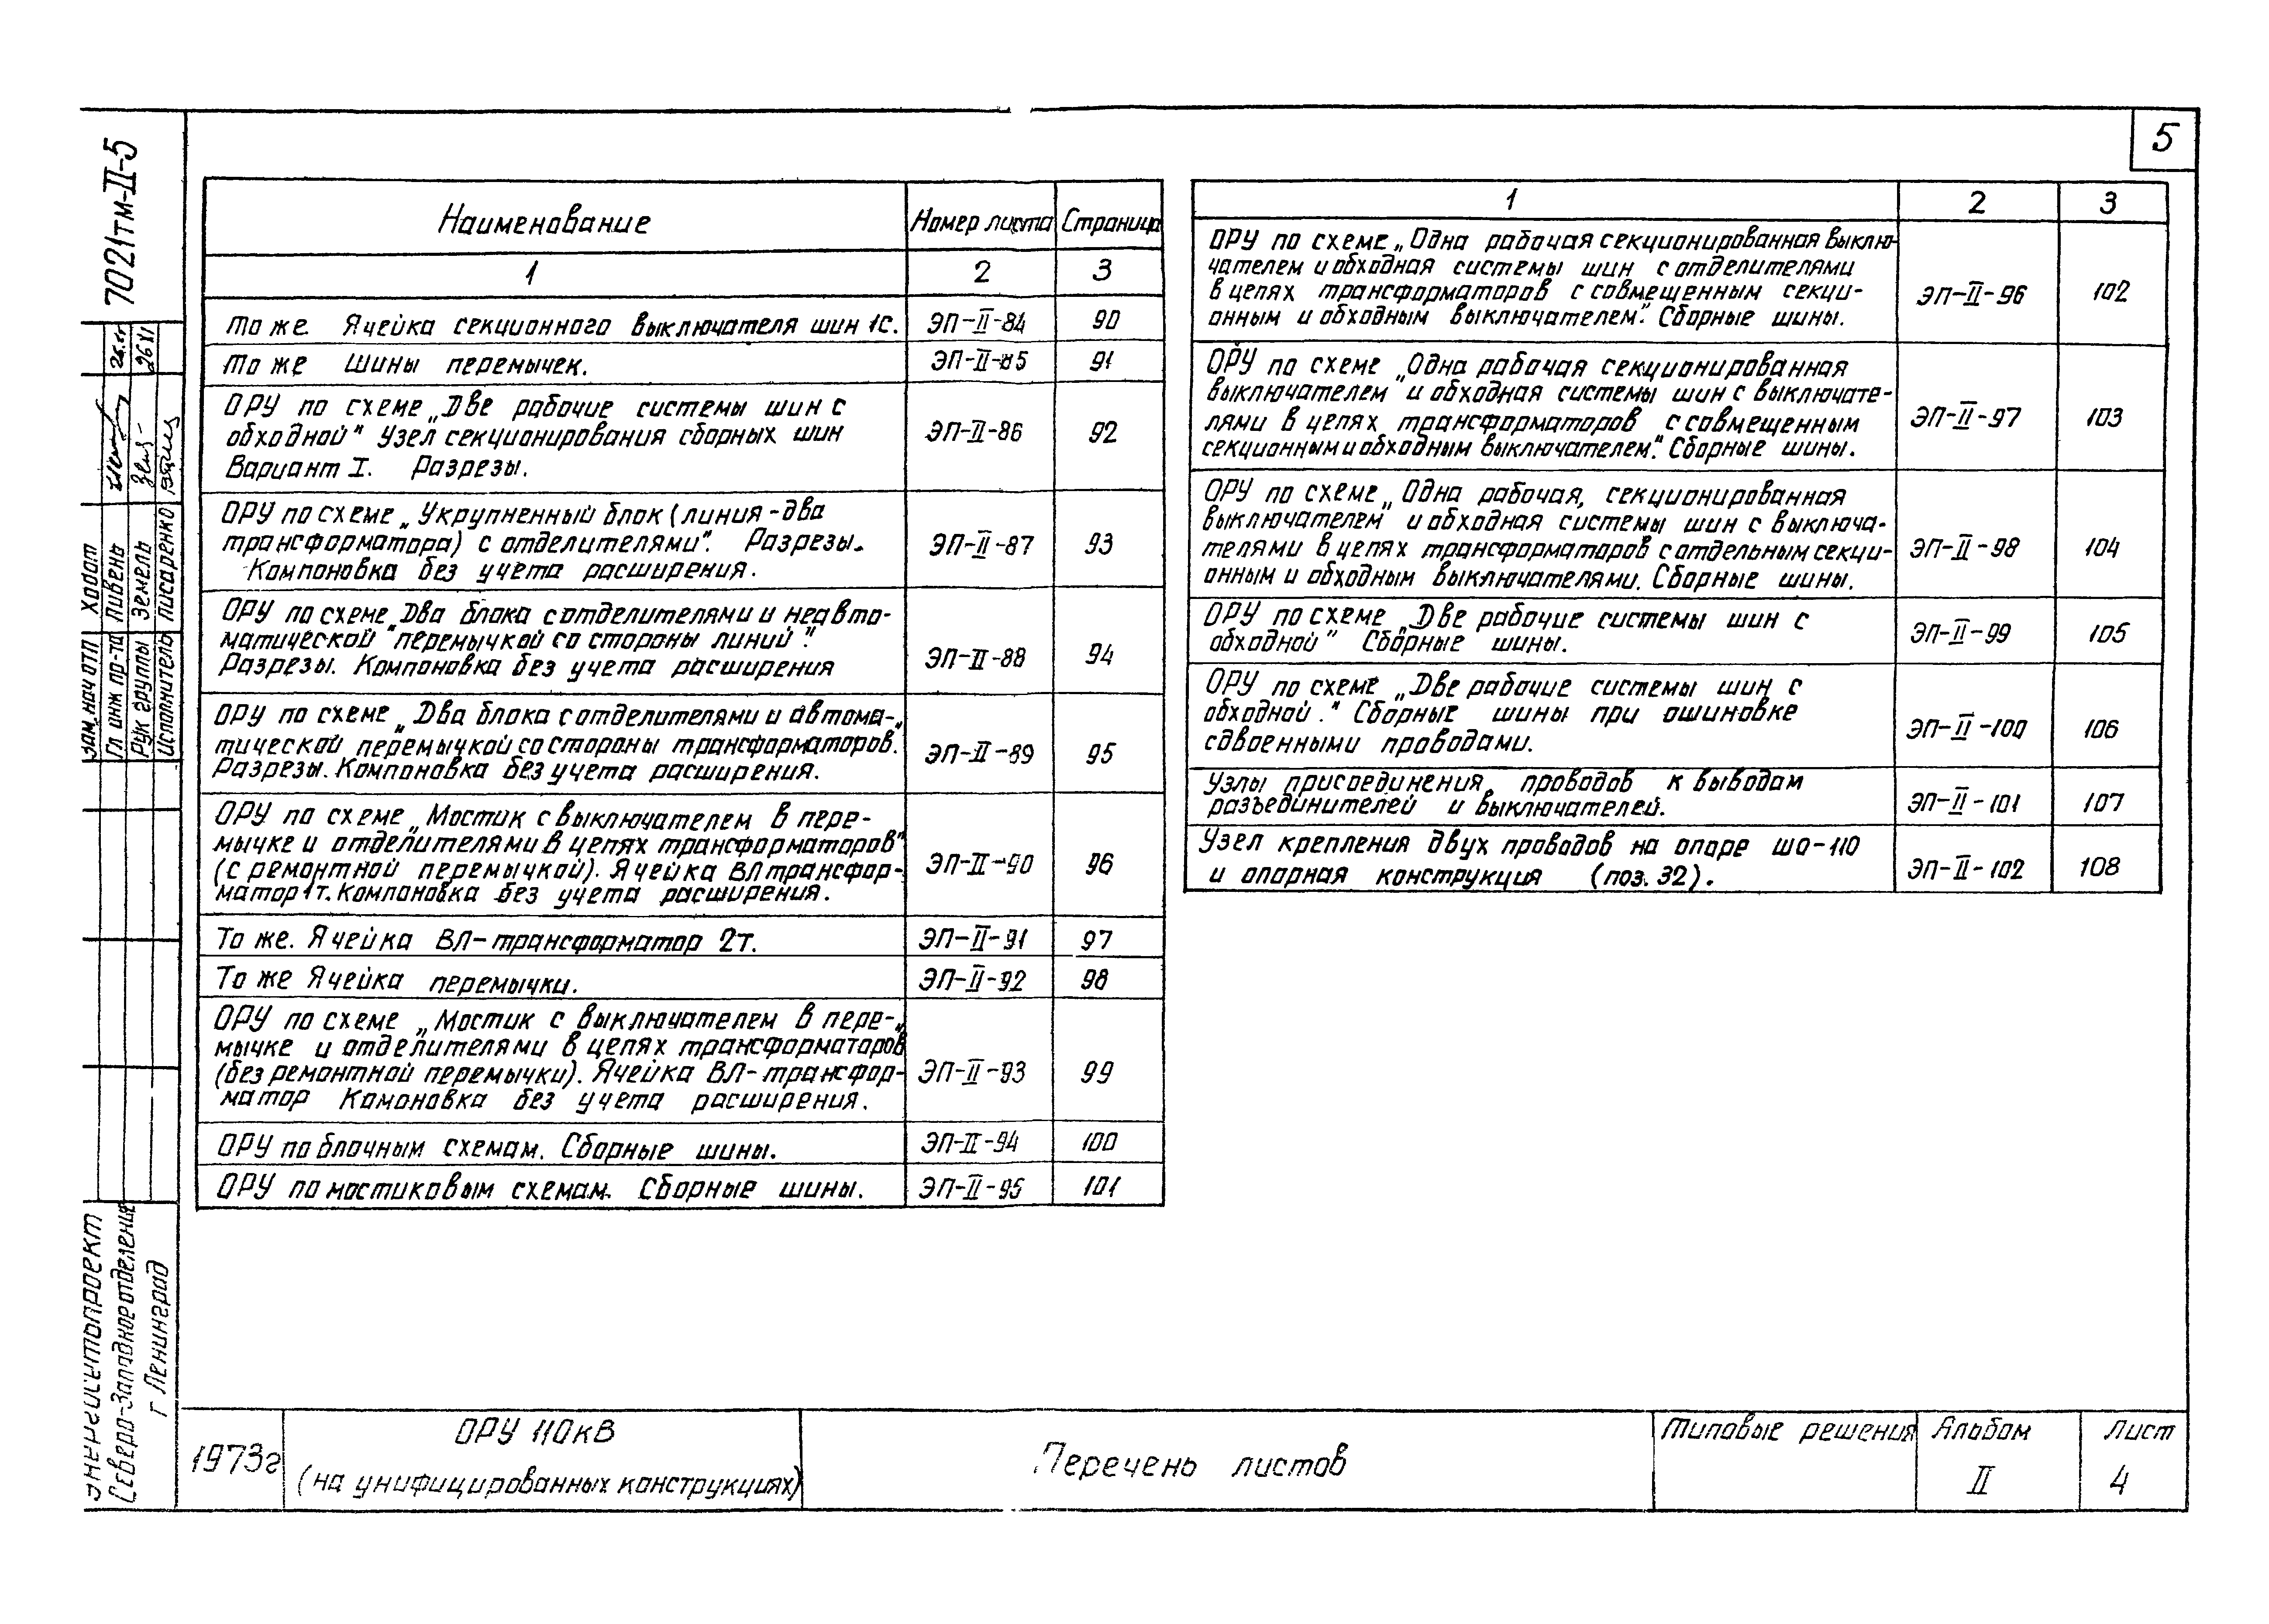 5
7021тм-II-5
Наименование Номер листа Страница
1 2 3
То же. Ячейка секционного выключателя шин 1с. ЭП-II-84 90
То же Шины перемычек. ЭП-II-85 91
ОРУ по схеме „Две рабочие системы шин с
обходной" Узел секционирования сборных шин
Вариант I. Разрезы.
ЭП-II-86 92
ОРУ по схеме „Укрупненный блок (линия-два
трансформатора) с отделителями". Разрезы.
Компоновка без учета расширения.
ЭП-II-87 93
ОРУ по схеме Два блока с отделителями и неавто-
матической "перемычкой со стороны линий".
Разрезы. Компоновка без учета расширения
ЭП-II-88 94
ОРУ по схеме „Два блока с отделителями и автома-
тической перемычкой со стороны трансформаторов."
Разрезы. Компоновка без учета расширения.
ЭП-II-89 95
ОРУ по схеме „Мостик с выключателем в пере-
мычке и отделителями в цепях трансформаторов"
(с ремонтной перемычкой). Ячейка ВЛ трансфор-
матор 1т. Компоновка без учета расширения.
ЭП-II-90 96
То же. Ячейка ВЛ-трансформатор 2т. ЭП-II-91 97
То же Ячейка перемычки. ЭП-II-92 98
ОРУ по схеме „Мостик с выключателем в пере-
мычке и отделителями в цепях трансформаторов"
(без ремонтной перемычки). Ячейка ВЛ-трансфор-
матор Комоновка без учета расширения.
ЭП-II-93 99
ОРУ по блочным схемам. Сборные шины. ЭП-II-94 100
ОРУ по мостиковым схемам. Сборные шины. ЭП-II-95 101
1 2 3
ОРУ по схеме „Одна рабочая секционированная выклю-
чателем и обходная системы шин с отделителями
в цепях трансформаторов с совмещенным секци-
онным и обходным выключателем". Сборные шины.
ЭП-II-96 102
ОРУ по схеме „Одна рабочая секционированная
выключателем" и обходная системы шин с выключате-
лями в цепях трансформаторов с совмещенным
секционным и обходным выключателем". Сборные шины.
ЭП-II-97 103
ОРУ по схеме „Одна рабочая, секционированная
выключателем" и обходная системы шин с выключа-
телями в цепях трансформаторов с отдельным секци-
онным и обходным выключателями. Сборные шины.
ЭП-II-98 104
ОРУ по схеме „Две рабочие системы шин с
обходной" Сборные шины.
ЭП-II-99 105
ОРУ по схеме „Две рабочие системы шин с
обходной." Сборные шины при ошиновке
сдвоенными проводами.
ЭП-II-100 106
Узлы присоединения проводов к выводам
разъединителей и выключателей.
ЭП-II-101 107
Узел крепления двух проводов на опоре ШО-110
и опорная конструкция (поз. 32).
ЭП-II-102 108
Зам. нач отп Ходот
Гл инж пр-та Пивень
Рук группы Земель
Исполнитель Писаренко
Энергосетьпроект
Северо-Западное отделение
г Ленинград
1973г
ОРУ 110кВ
(на унифицированных конструкциях)
Перечень листов
Типовые решения
Альбом
II
Лист
4